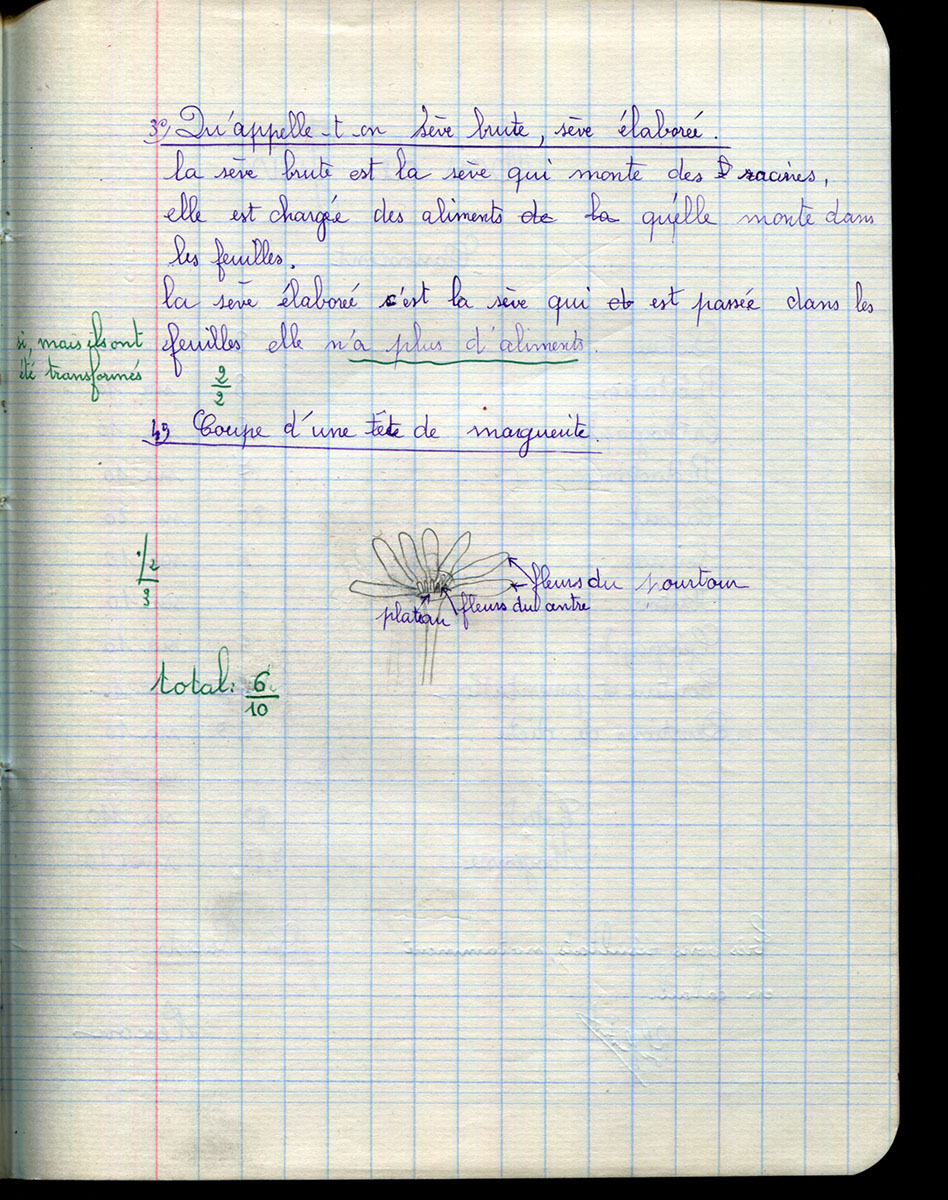 3°) Qu'appelle-t-on sève brute, sève élaboreé.
la sève brute est la sève qui monte des racines,
elle est chargée des aliments de la qu'elle monte dans
les feuilles.
la sève élaboreé c'est la sève qui est passée dans les
si, mais ils ont feuilles elle n'a plus d'aliments.
été transformés
2/2
4°) Coupe d'une tête de marguerite.
2/3
fleurs du pourtour
plateau fleurs du centre
total: 6/10